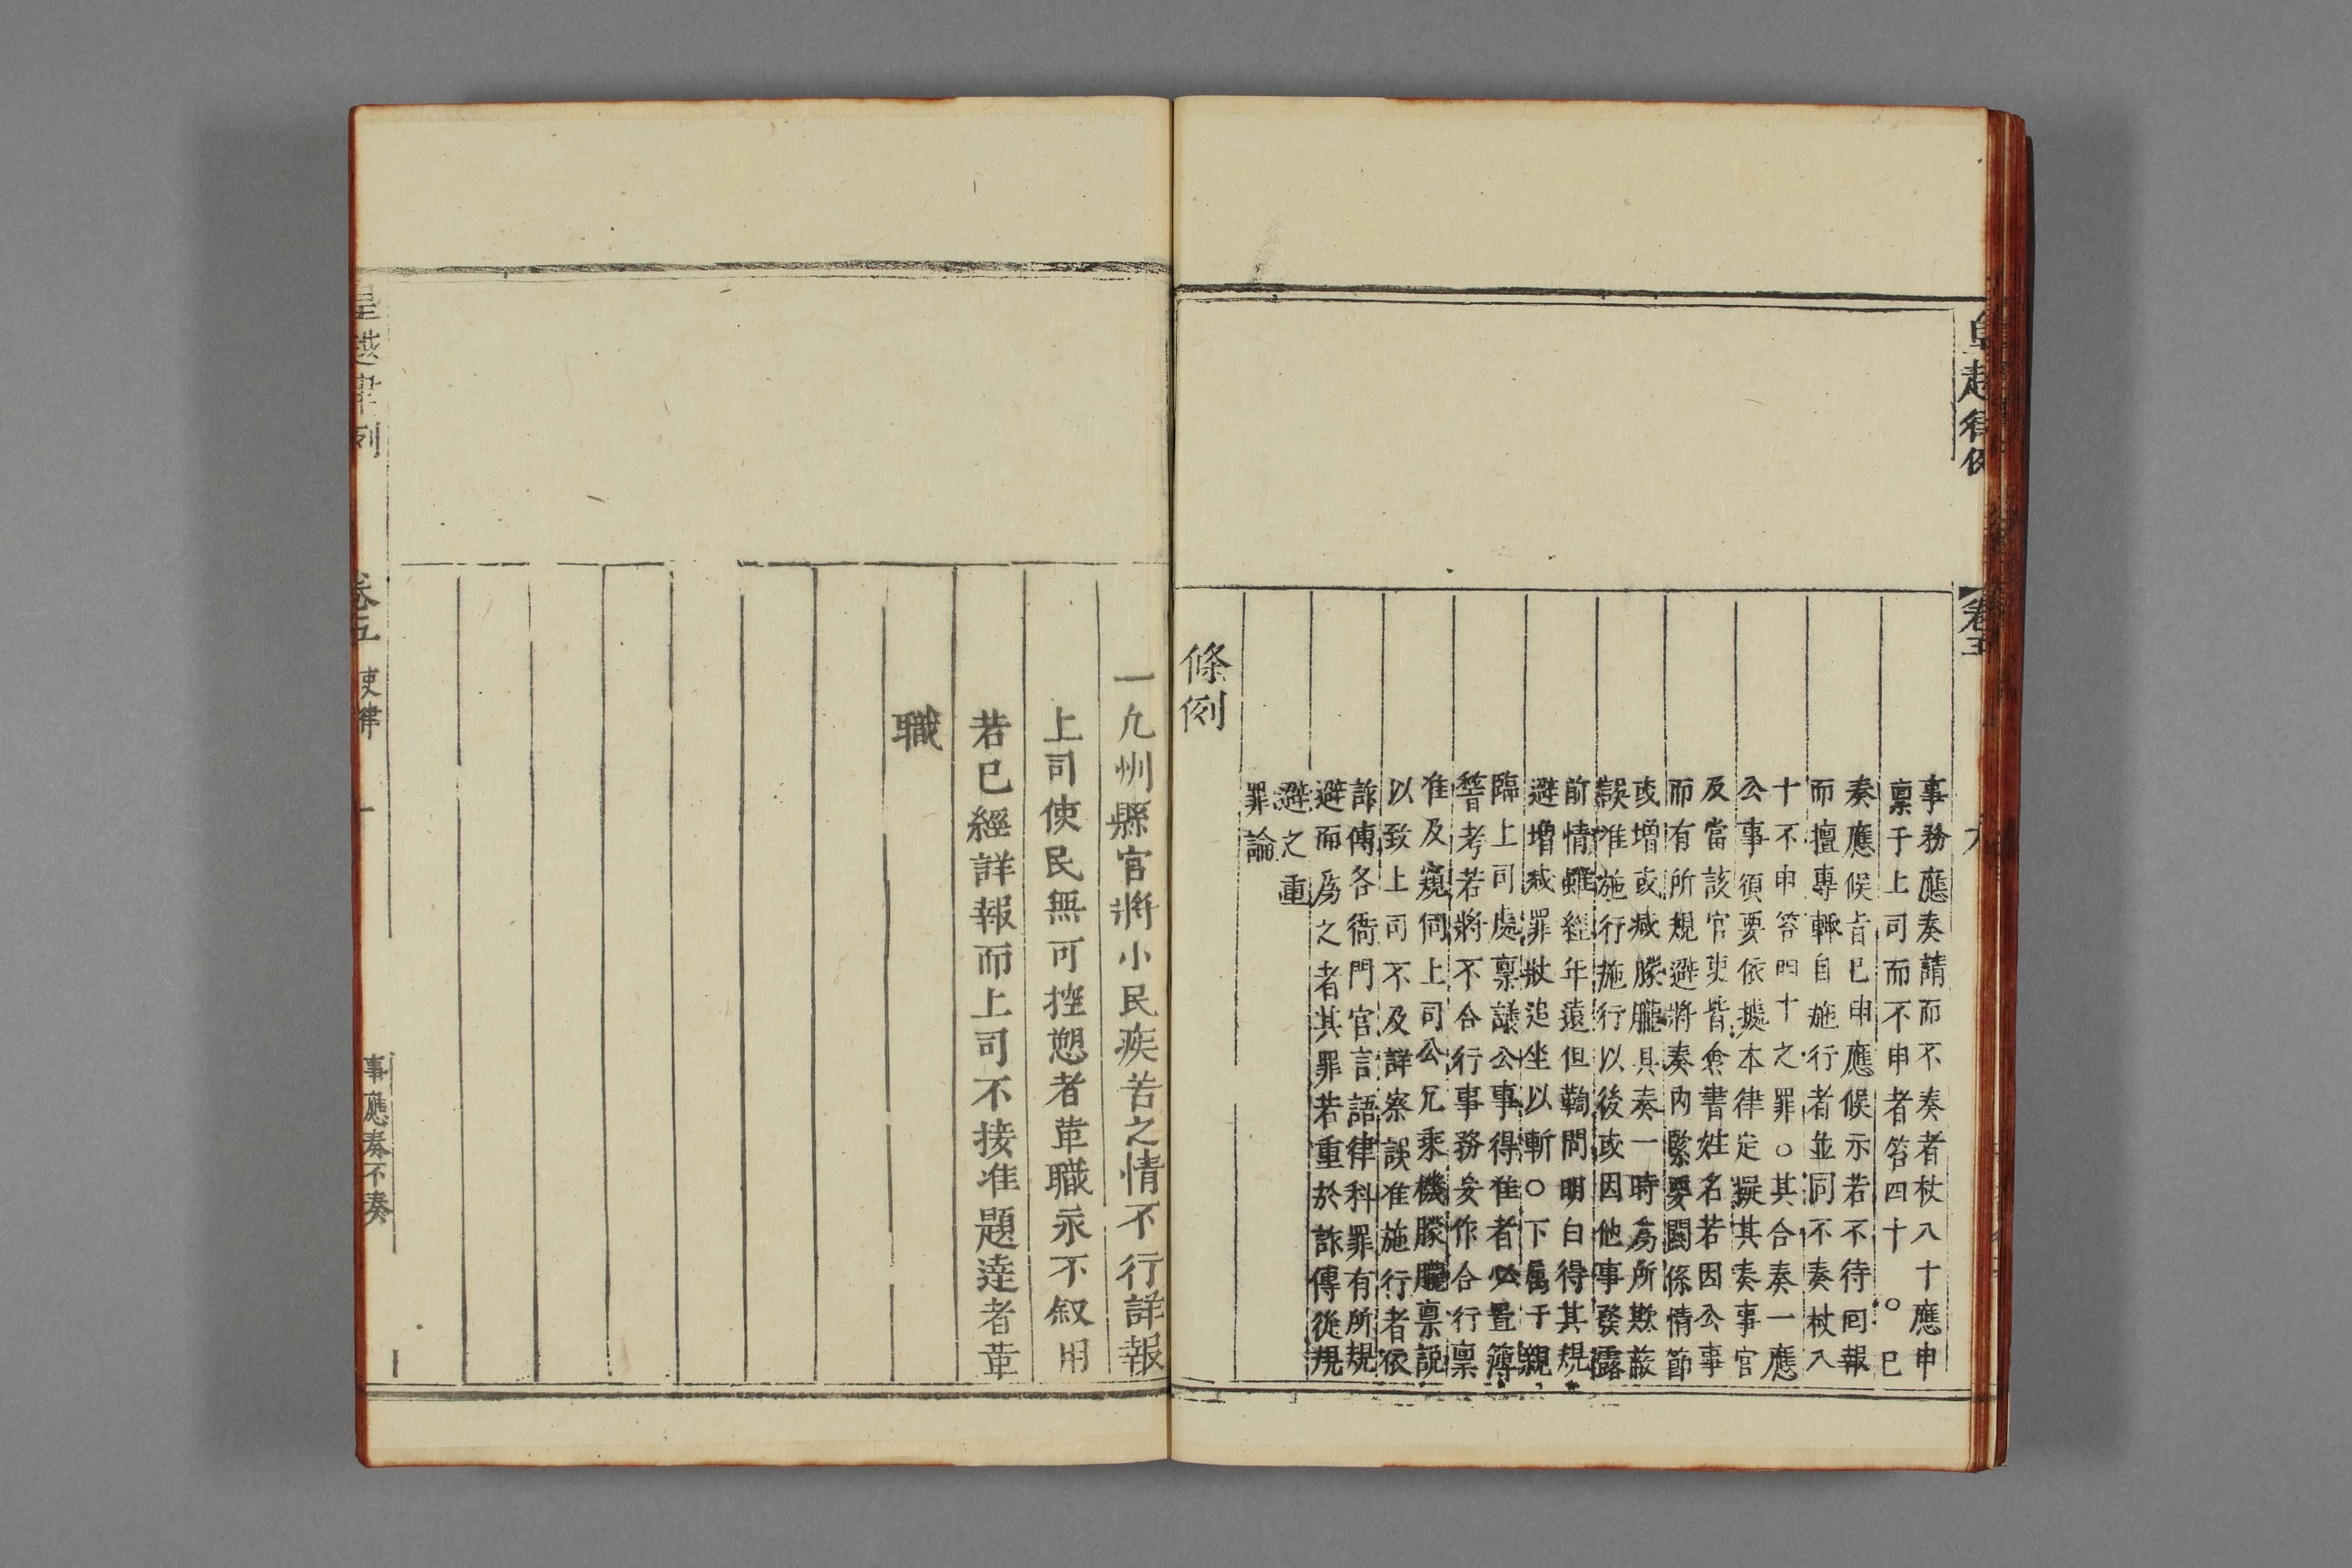 皇越律例
卷五
六
事務應奏請而不奏者杖八十應申
稟于上司而不申者笞四十○已
奏應候旨已申應候示若不待囘報
而擅專輙自施行者並同不奏杖八
十不申笞四十之罪○其合奏一應
公事須要依據本律定擬其奏事官
及當該官吏皆僉書姓名若因公事
而有所規避將奏內緊要關係情節
或增或减朦朧具奏一時爲所欺蔽
誤准施行施行以後或因他事發露
前情雖經年遠但鞫問明白得其規
避增减罪狀追坐以斬○下屬于親
臨上司處稟議公事得准者必置簿
瞽考若將不合行事務妄作合行稟
准及窺伺上司公冗乘機朦朧稟說
以致上司不及詳察誤准施行者依
詐傳各衙門官言語律科罪有所規
避而爲之者其罪若重於詐傳從規
避之重
罪論
條例
一凢州縣官將小民疾苦之情不行詳報
上司使民無可控愬者革職永不叙用
若已經詳報而上司不接准題達者革
職
皇越律例
卷五
吏律
事應奏不奏